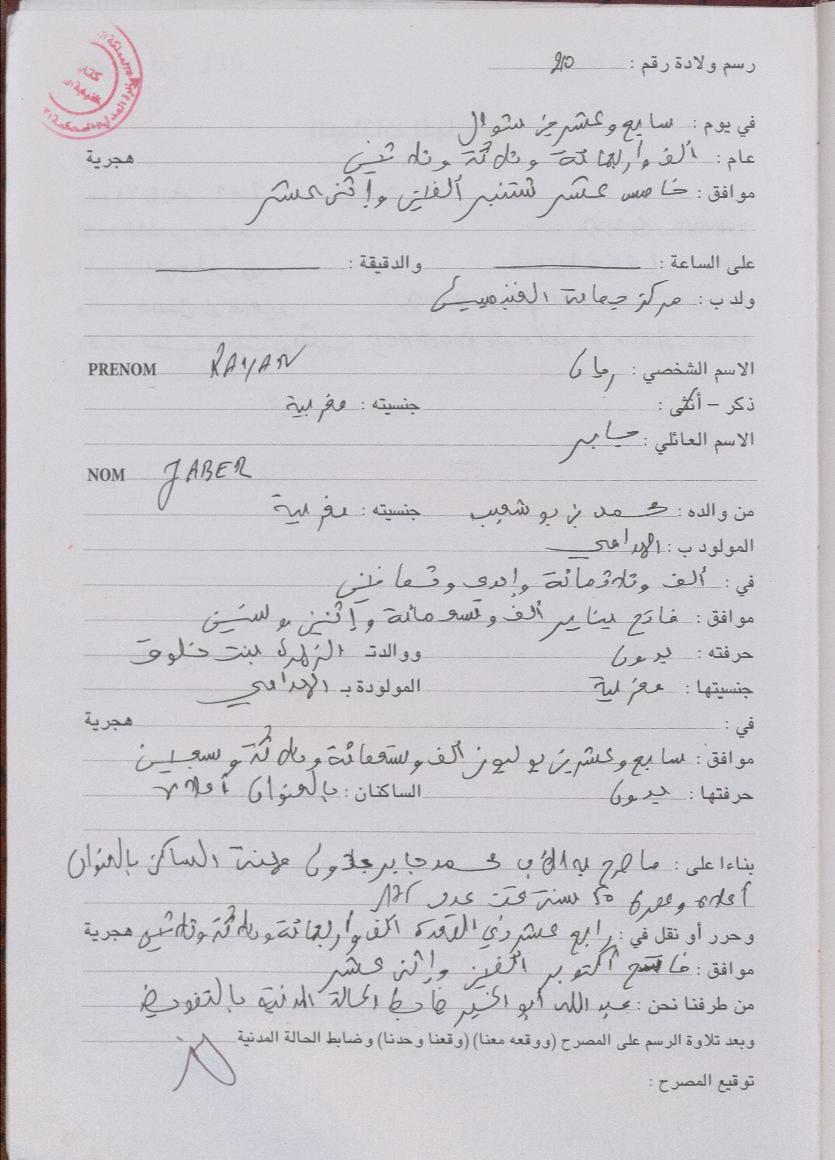 رسم ولادة رقم : 210
في يوم : سابع وعشرين شوال
عام : ألف وأربعمائة وثلاثة وثلاثين هجرية
موافق : خامس عشر شتنبر ألفين وإثنى عشر
على الساعة : والدقيقة :
ولد ب : مركز جماعة
الاسم الشخصي : ريان PRENOM RAYAN
ذكر - أنثى : جنسيته : مغربية
الاسم العائلي : جابر
NOM JABER
من والده : محمد بن بوشعيب جنسيته : مغربية
المولود ب :
في : ألف وثلاثمائة وإحدى وثمانين
موافق : فاتح يناير ألف وتسعمائة وإثنين وستين
حرفته : بدون ووالدت الزهرة بنت خلوق
جنسيتها : مغربية المولودة ب
في : هجرية
موافق : سابع وعشرين يوليوز ألف وتسعمائة وثلاثة وسبعين
حرفتها : بدون الساكنان : بالعنوان أعلاه
بناءا على : ما صرح به الأب محمد جابر بدون مهنة الساكن بالعنوان
أعلاه وعمره 50 سنة تحت عدد
وحرر أو نقل في : رابع عشر ذي القعدة ألف وأربعمائة وثلاثة وثلاثين هجرية
موافق : فاتح أكتوبر ألفين وإثنى عشر
من طرفنا نحن : عبد الله أبو الخير ضابط الحالة المدنية بالتفويض
وبعد تلاوة الرسم على المصرح (ووقعه معنا) (وقعنا وحدنا) وضابط الحالة المدنية
توقيع المصرح :